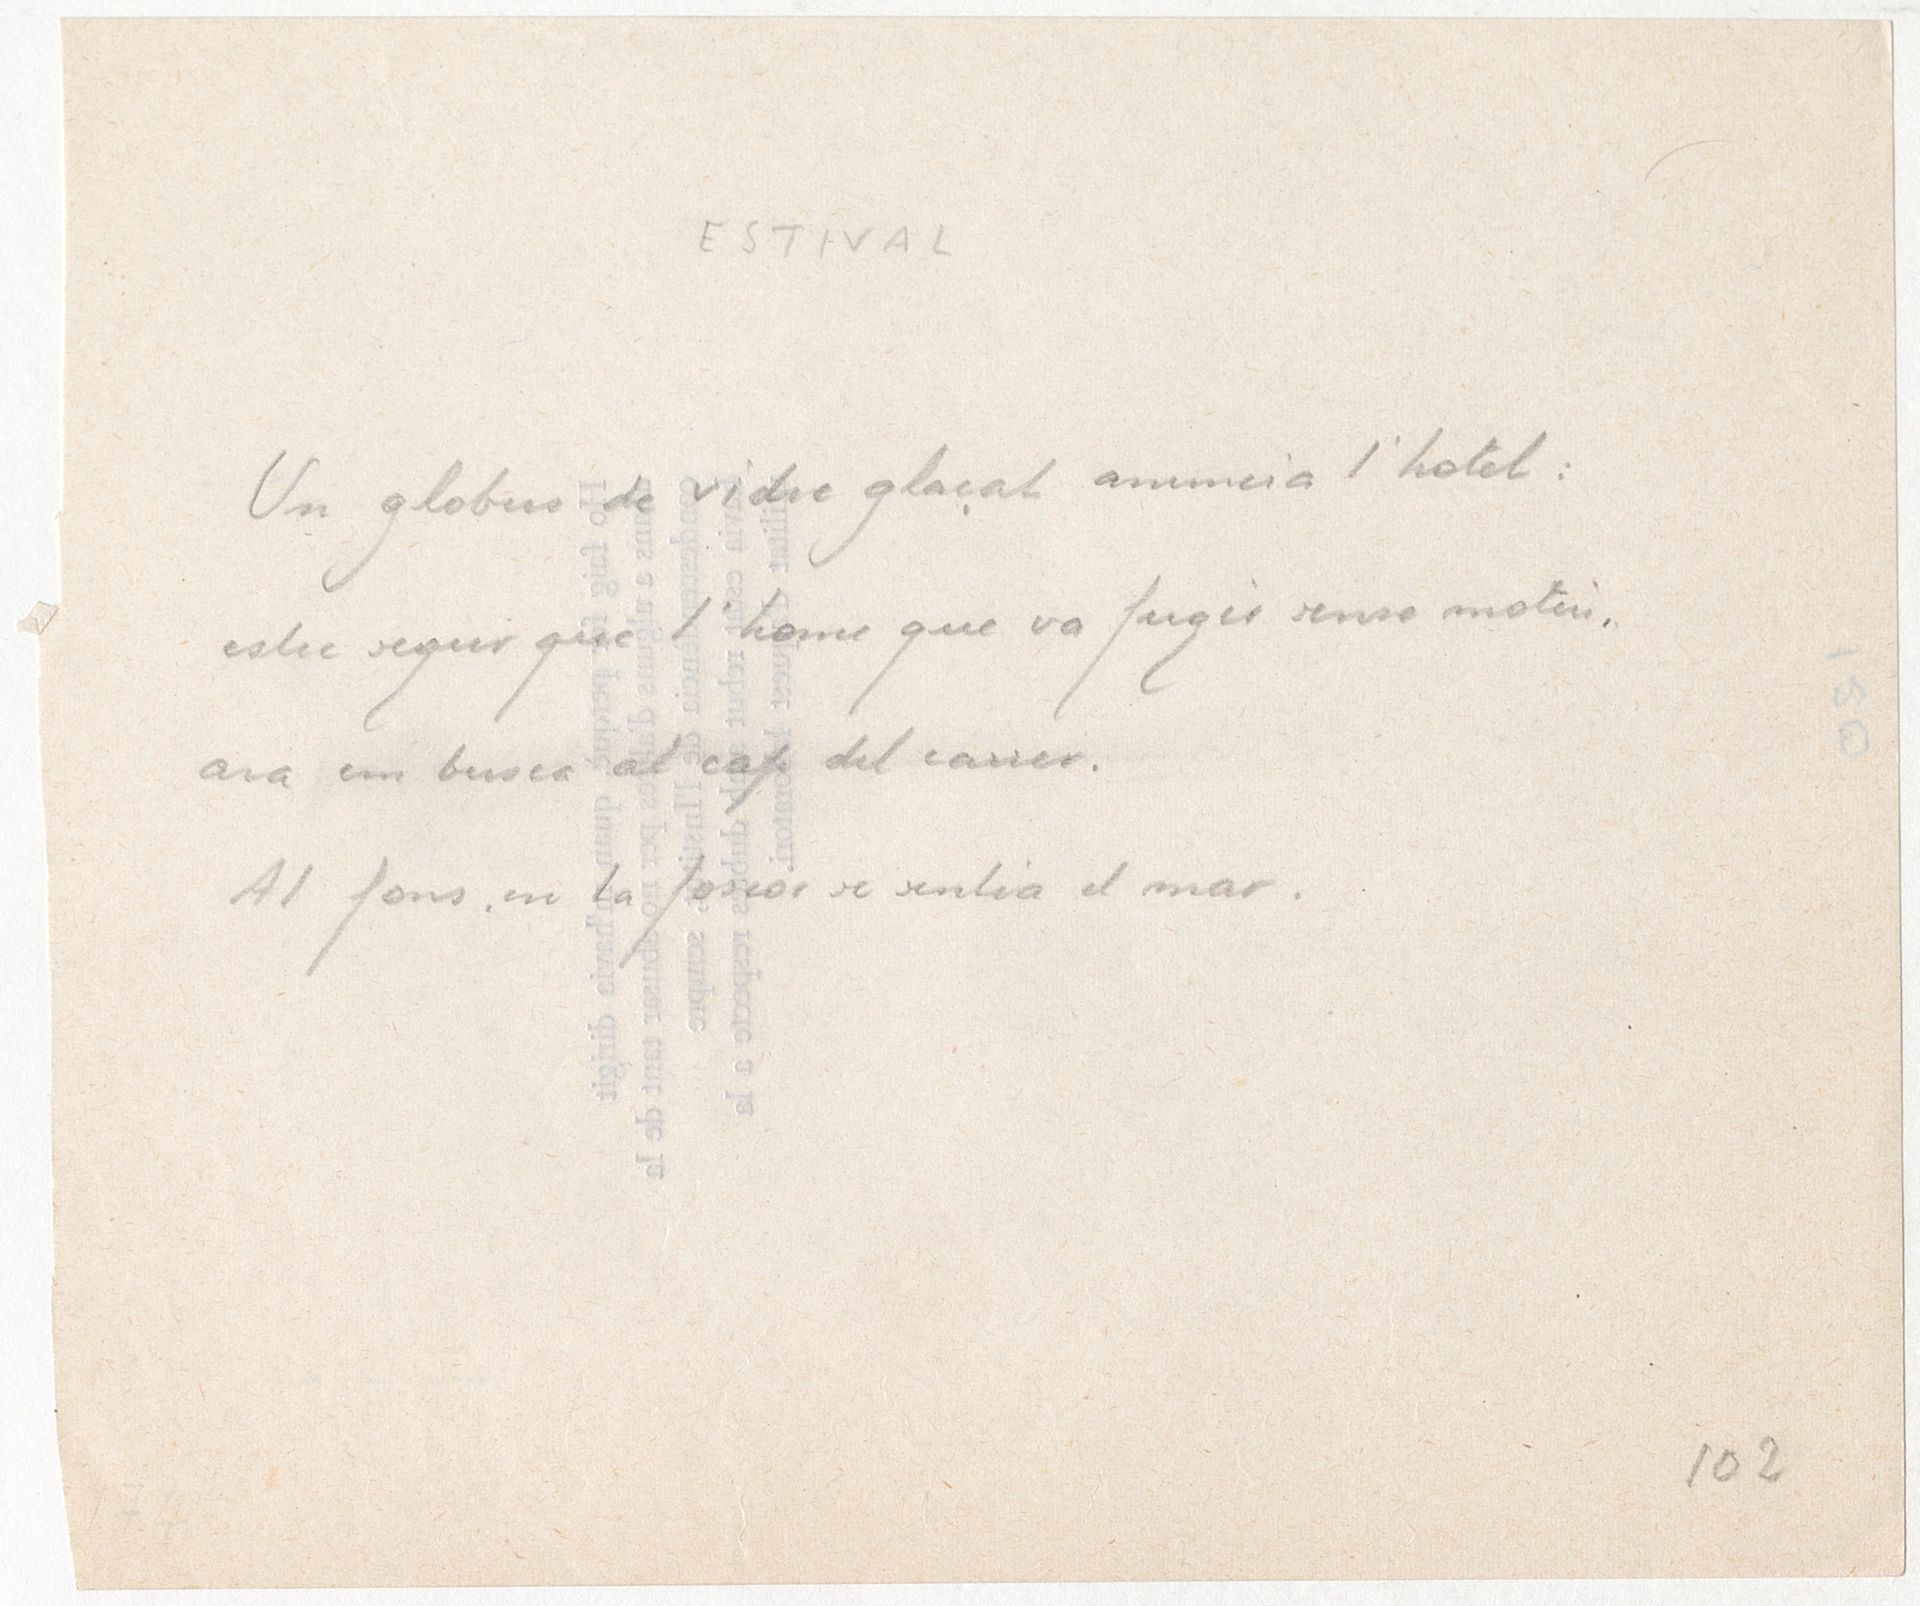 ESTIVAL
Un globus de vidre glaçat anuncia l'hotel:
estic segur que l'home que va fugir sense motiu,
ara em busca al cap del carrer.
Al fons, en la foscor se sentia el mar.
102